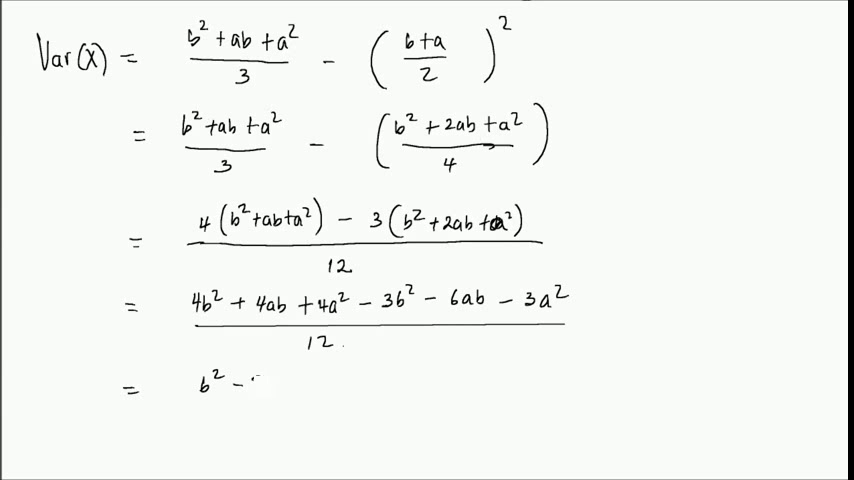 Var(X) = (b² + ab + a²)/3 − ((b+a)/2)²
= (b² + ab + a²)/3 − ((b² + 2ab + a²)/4)
= (4(b² + ab + a²) − 3(b² + 2ab + a²))/12
= (4b² + 4ab + 4a² − 3b² − 6ab − 3a²)/12
= b² −